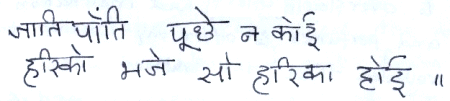 जाति पाँति पूछे न कोई
हरिको भजे सो हरिका होई ॥